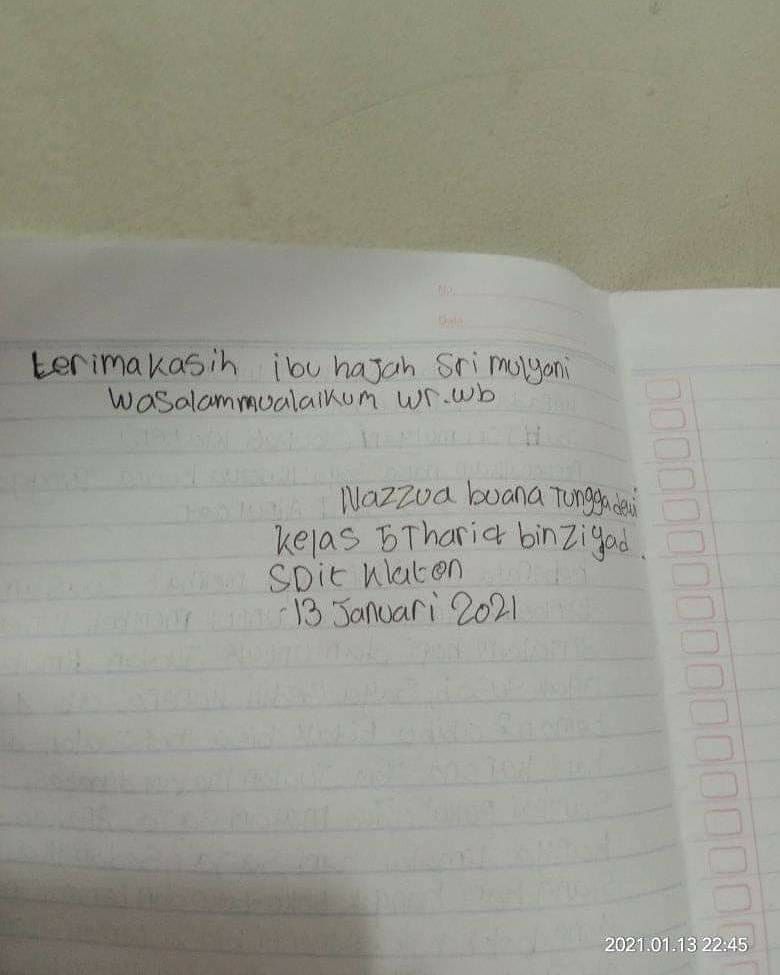 No.
Date
terimakasih ibu hajah Sri mulyani
wasalammualaikum wr.wb
Nazzua buana Tunggadewi
kelas 5 Thariq bin Ziyad
SDit Klaten
13 Januari 2021
2021.01.13 22:45